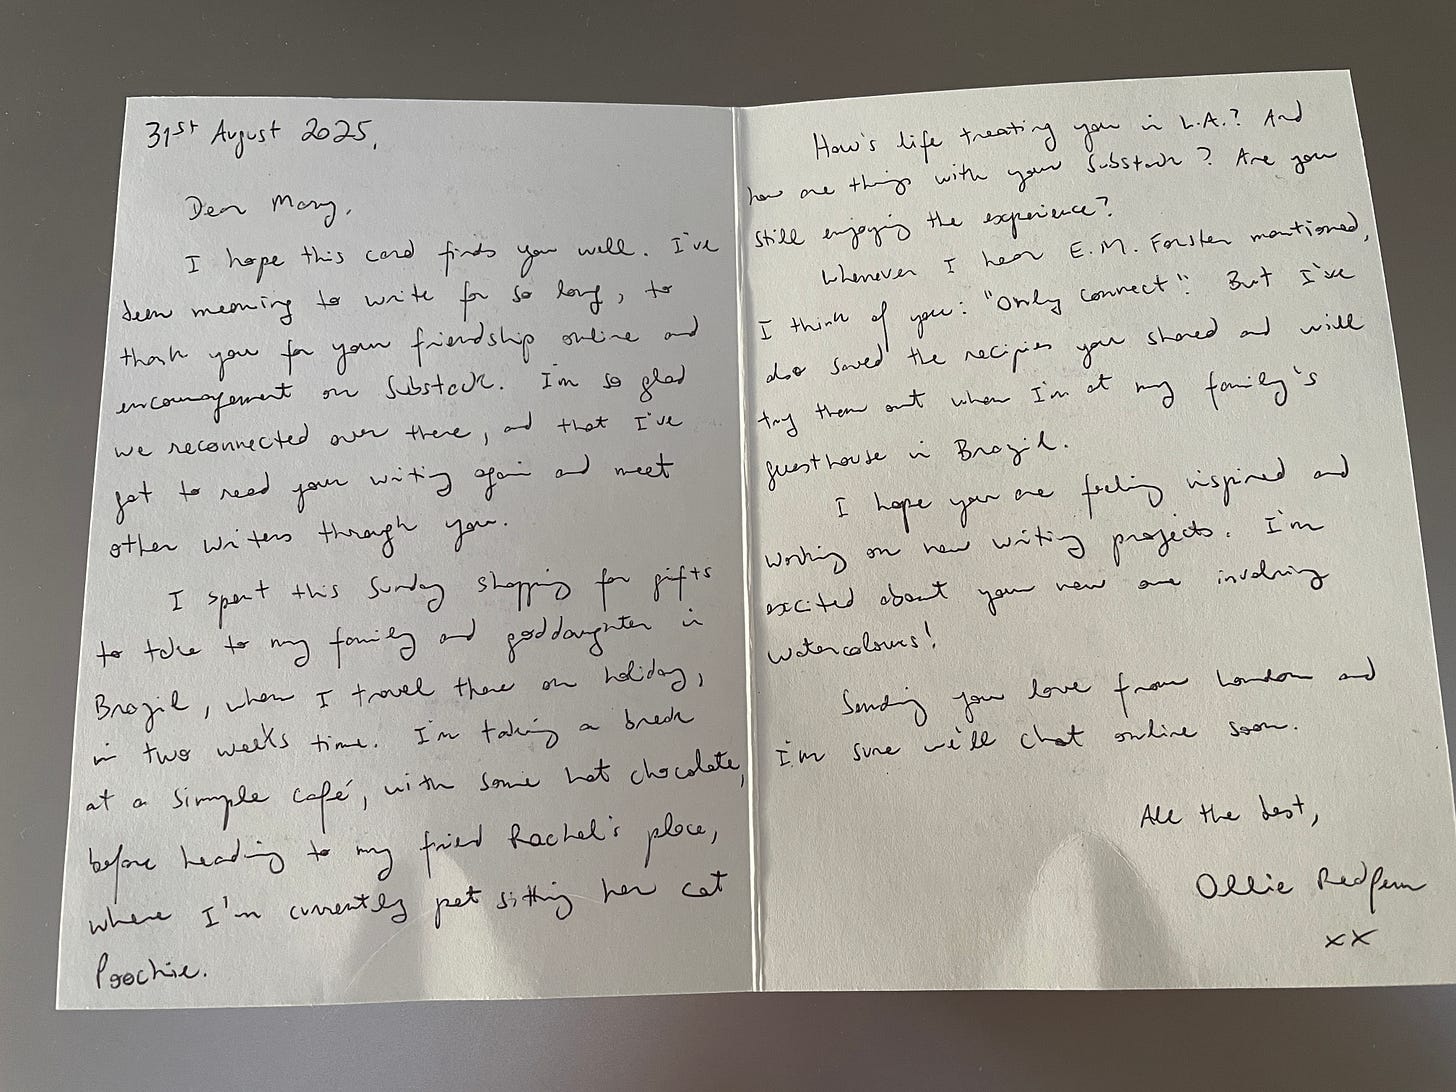 31st August 2025,
Dear Mary,
I hope this card finds you well. I've
been meaning to write for so long, to
thank you for your friendship online and
encouragement on Substack. I'm so glad
we reconnected over there, and that I've
got to read your writing again and meet
other writers through you.
I spent this Sunday shopping for gifts
to take to my family and goddaughter in
Brazil, when I travel there on holiday,
in two weeks time. I'm taking a break
at a simple café, with some hot chocolate,
before heading to my fried Rachel's place,
where I'm currently pet sitting her cat
Poochie.
How's life treating you in L.A.? And
how are things with your Substack? Are you
still enjoying the experience?
Whenever I hear E.M. Forster mentioned,
I think of you: "Only connect". But I've
also saved the recipies you shared and will
try them out when I'm at my family's
guesthouse in Brazil.
I hope you are feeling inspired and
working on new writing projects. I'm
excited about your new one involving
watercolours!
Sending you love from London and
I'm sure we'll chat online soon.
All the best,
Ollie Redfern
xx